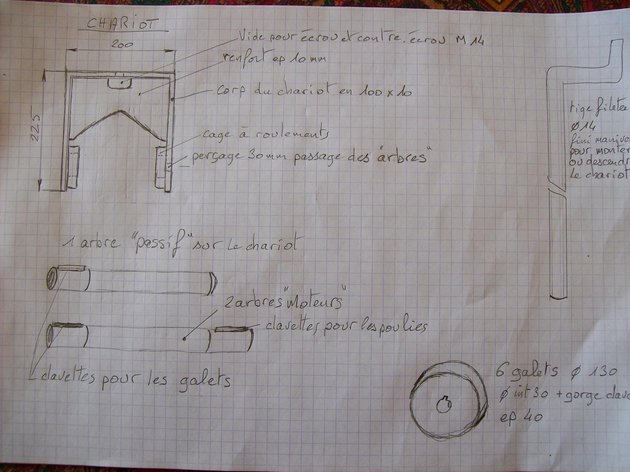 CHARIOT
200
Vide pour écrou et contre.écrou M14
renfort ep 10mm
corp du chariot en 100x10
225
cage à roulements
perçage 30mm passage des "arbres"
tige filetée
ø 14
fini
pour monter
ou descendre
le chariot
1 arbre "passif" sur le chariot
2 arbres "Moteurs"
clavettes pour les poulies
clavettes pour les galets
6 galets ø 130
ø int 30 + gorge clave
ep 40